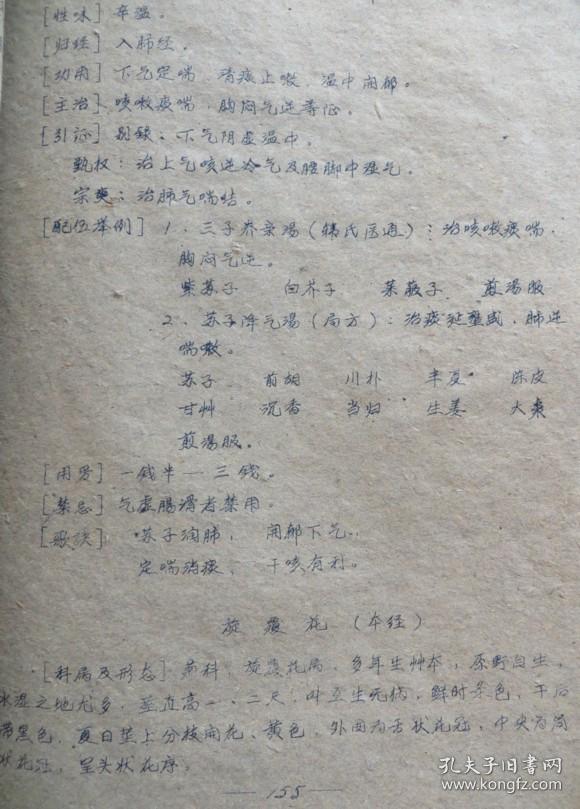 [性味] 辛温。
[归经] 入肺经。
[功用] 下气定喘 清痰止嗽、温中开郁。
[主治] 咳嗽痰喘、胸闷气逆等症。
[引证] 别录：下气阴虚温中。
甄权：治上气咳逆冷气及腰脚中湿气。
宗奭：治肺气喘结。
[配伍举例] 1、三子养亲汤（韩氏医通）：治咳嗽痰喘、
胸闷气逆。
紫苏子 白芥子 莱菔子 煎湯服
2、苏子降气湯（局方）：治痰涎壅盛、肺逆
喘嗽。
苏子 前胡 川朴 半夏 陈皮
甘艸 沉香 当归 生姜 大枣
煎湯服。
[用量] 一钱半——三钱。
[禁忌] 气虚腸滑者禁用。
[歌诀] 苏子润肺， 开郁下气，
定喘消痰、 干咳有利。
旋覆花（本经）
[科属及形态] 菊科、旋覆花属，多年生艸本，原野自生，
水湿之地尤多，茎直高一、二尺，叶互生无柄，鲜时绿色，干后
带黑色，夏日茎上分枝开花，黄色，外围为舌状花冠，中央为筒
状花冠，呈头状花序。
—155—
孔夫子旧书网
www.kongfz.com